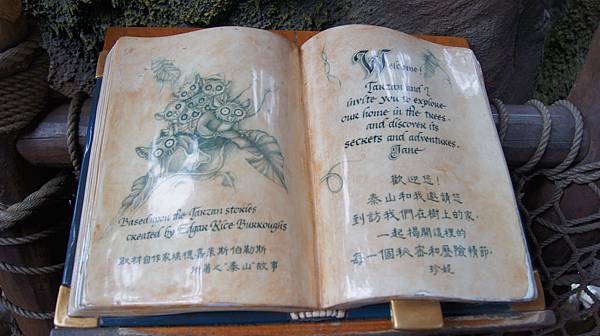 Based upon the Tarzan stories
created by Edgar Rice Burroughs
取材自作家埃德嘉萊斯伯勒斯
所著之"泰山"故事
Welcome!
Tarzan and I
invite you to explore
our home in the trees
and discover its
secrets and adventures.
Jane
歡迎您!
泰山和我邀請您
到訪我們在樹上的家,
一起揭開這裡的
每一個秘密和歷險情節。
珍妮